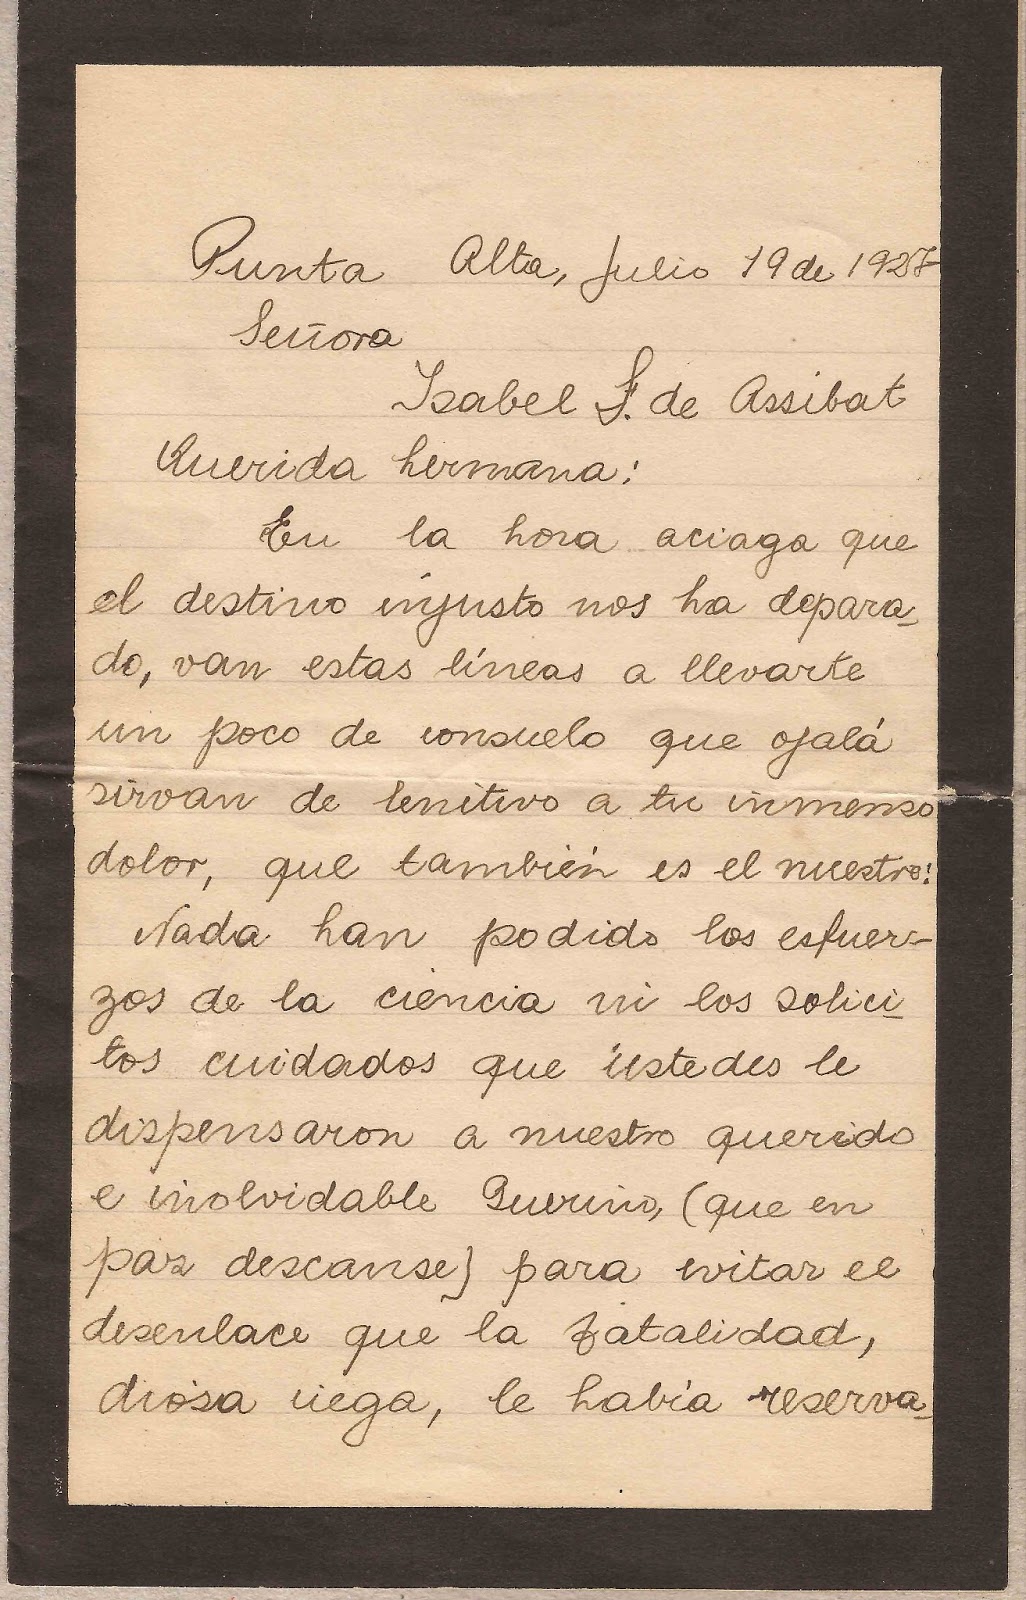 Punta Alta, Julio 19 de 1927
Señora
Isabel F. de Assibat
Querida hermana:
En la hora aciaga que
el destino injusto nos ha depara-
do, van estas líneas a llevarte
un poco de consuelo que ojalá
sirvan de lenitivo a tu inmenso
dolor, que también es el nuestro!
Nada han podido los esfuer-
zos de la ciencia ni los solici-
tos cuidados que ustedes le
dispensaron a nuestro querido
e inolvidable Guerino, (que en
paz descanse) para evitar el
desenlace que la fatalidad,
diosa ciega, le había reserva-